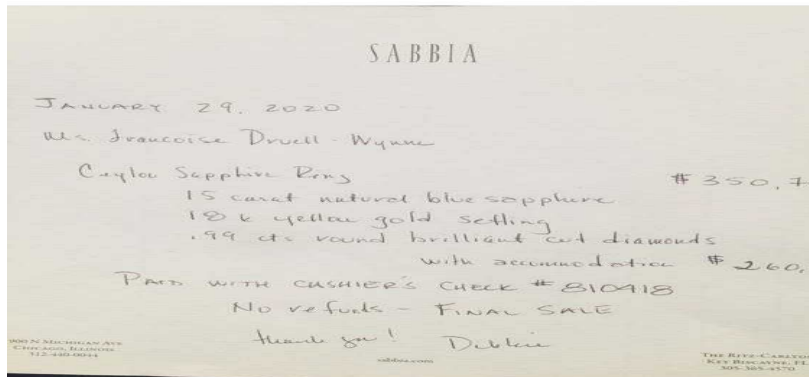 SABBIA
JANUARY 29, 2020
Ms. Francoise Druell-Wynne
Ceylon Sapphire Ring $350,7
15 carat natural blue sapphire
18 k yellow gold setting
.99 cts round brilliant cut diamonds
with accommodation $260,
PAID WITH CASHIER'S CHECK #810418
No refunds - FINAL SALE
thank you! Debbie
900 N MICHIGAN AVE
CHICAGO, ILLINOIS
312-440-0044
sabbia.com
THE RITZ-CARLTON
KEY BISCAYNE, FL
305-365-4570